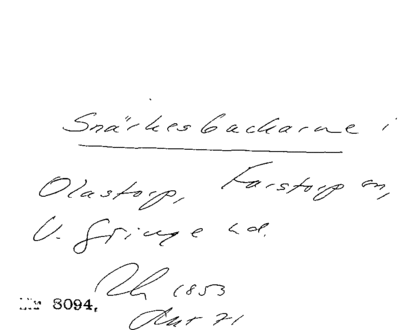 Snärkesbackarne i
Olastorp, Farstorp sn,
V. Göinge hd.
1853
8094,
71